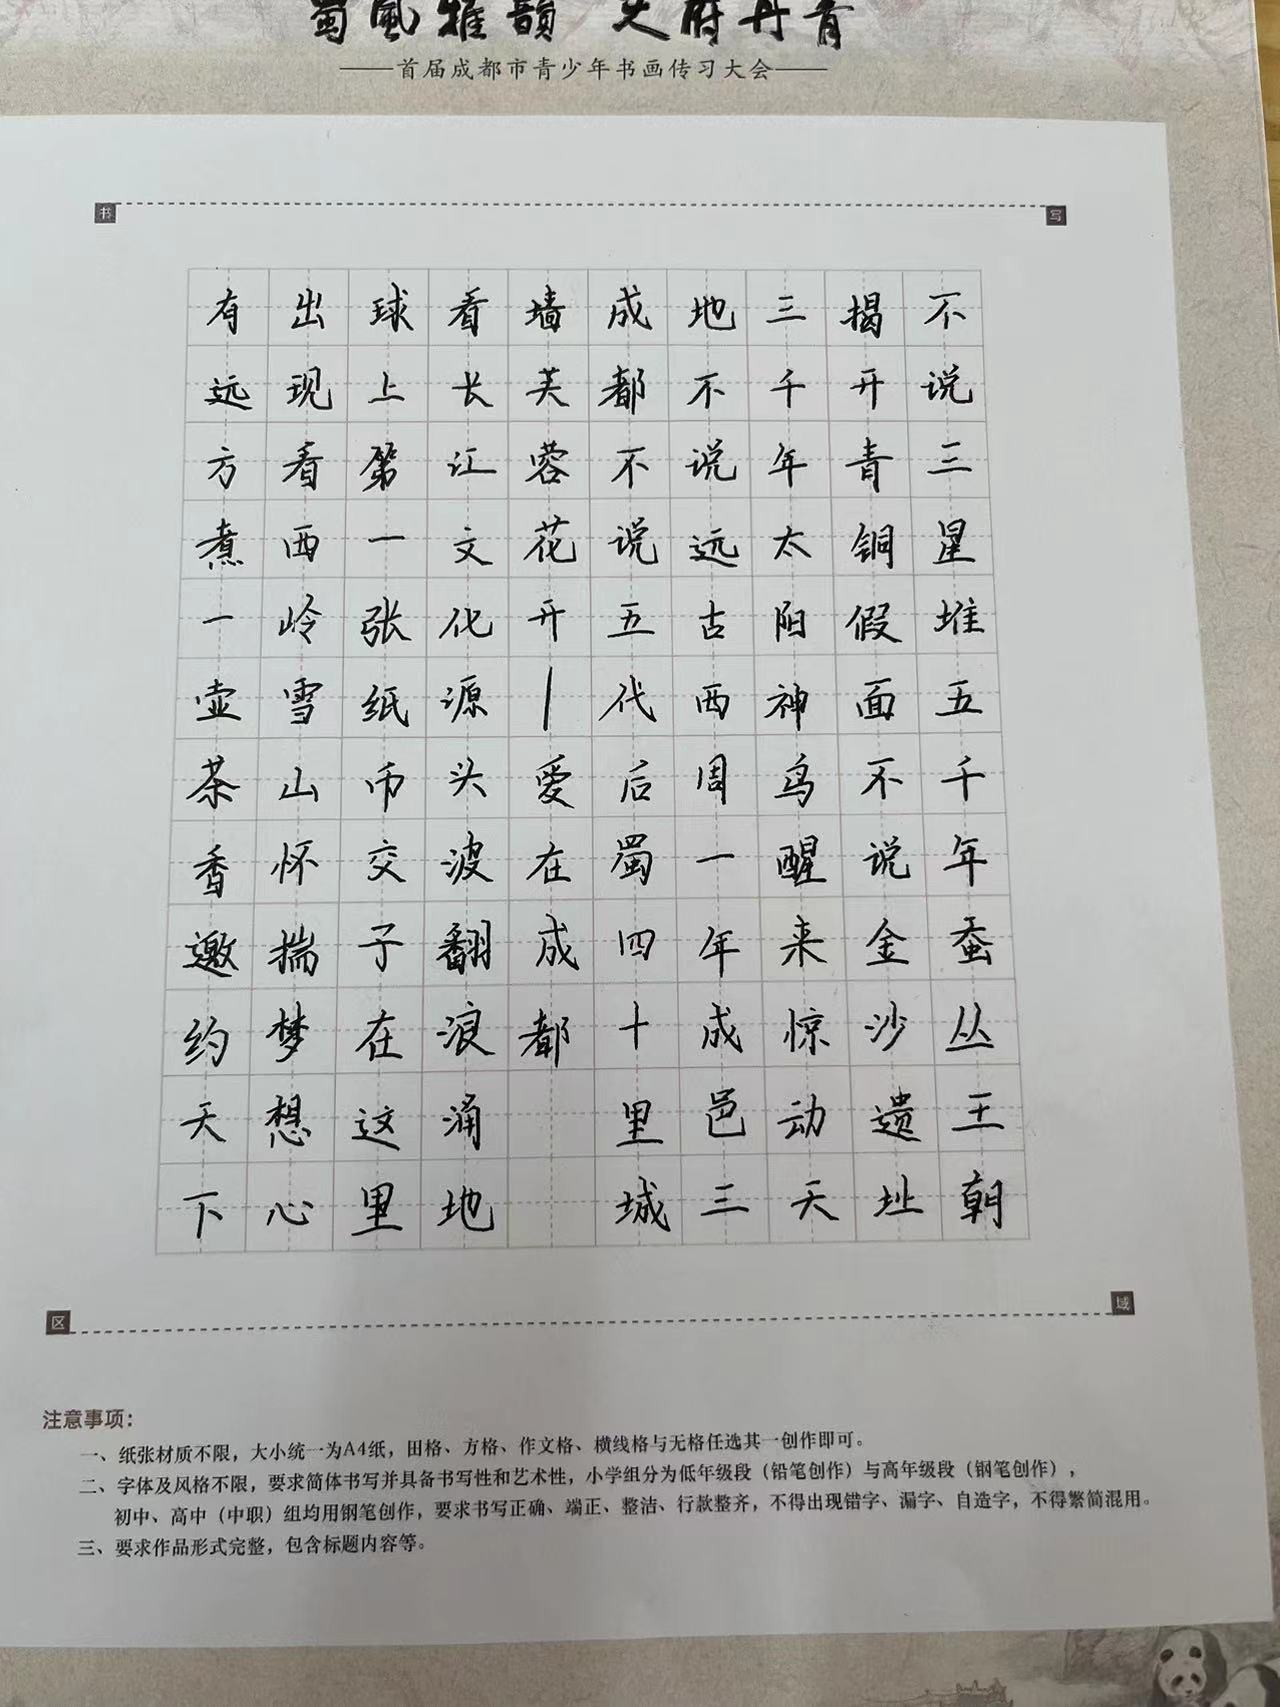 蜀風雅韻 天府丹青
——首届成都市青少年书画传习大会——
书 写
不说三星堆五千年蚕丛王朝
揭开青铜假面不说金沙遗址
三千年太阳神鸟醒来惊动天
地不说远古西周一年成邑三
成都不说五代后蜀四十里城
墙芙蓉花开—爱在成都
看长江文化源头波翻浪涌地
球上第一张纸币交子在这里
出现看西岭雪山怀揣梦想心
有远方煮一壶茶香邀约天下
区 域
注意事项：
一、纸张材质不限，大小统一为A4纸，田格、方格、作文格、横线格与无格任选其一创作即可。
二、字体及风格不限，要求简体书写并具备书写性和艺术性，小学组分为低年级段（铅笔创作）与高年级段（钢笔创作），
初中、高中（中职）组均用钢笔创作，要求书写正确、端正、整洁、行款整齐，不得出现错字、漏字、自造字，不得繁简混用。
三、要求作品形式完整，包含标题内容等。